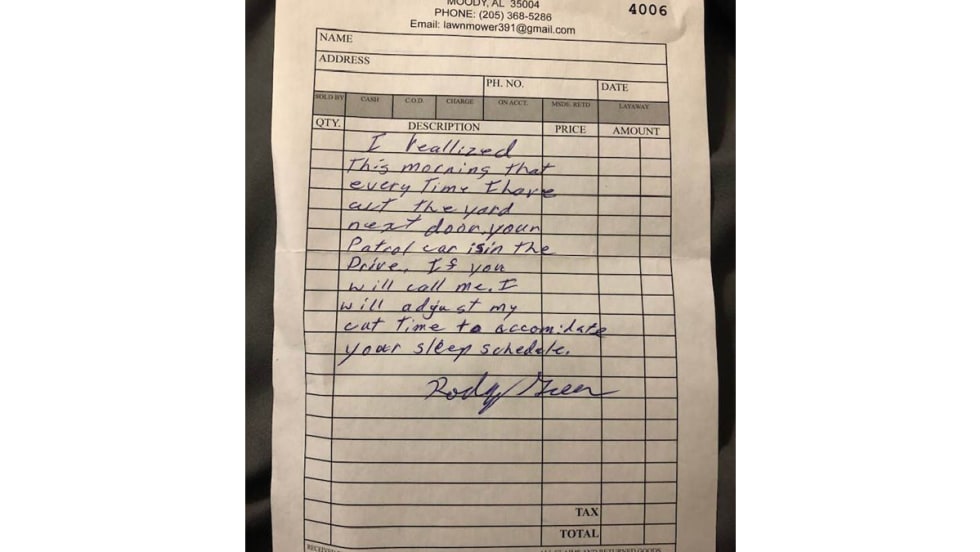 MOODY, AL 35004
PHONE: (205) 368-5286
Email: lawnmower391@gmail.com
4006
NAME
ADDRESS
PH. NO.
DATE
SOLD BY
CASH
C.O.D.
CHARGE
ON ACCT.
MSDE. RETD
LAYAWAY
QTY.
DESCRIPTION
PRICE
AMOUNT
I reallized
This morning that
every Time I have
cut the yard
next door, your
Patrol car is in the
Drive. If you
will call me. I
will adjust my
cut Time to accomidate
your sleep schedule.
TAX
TOTAL